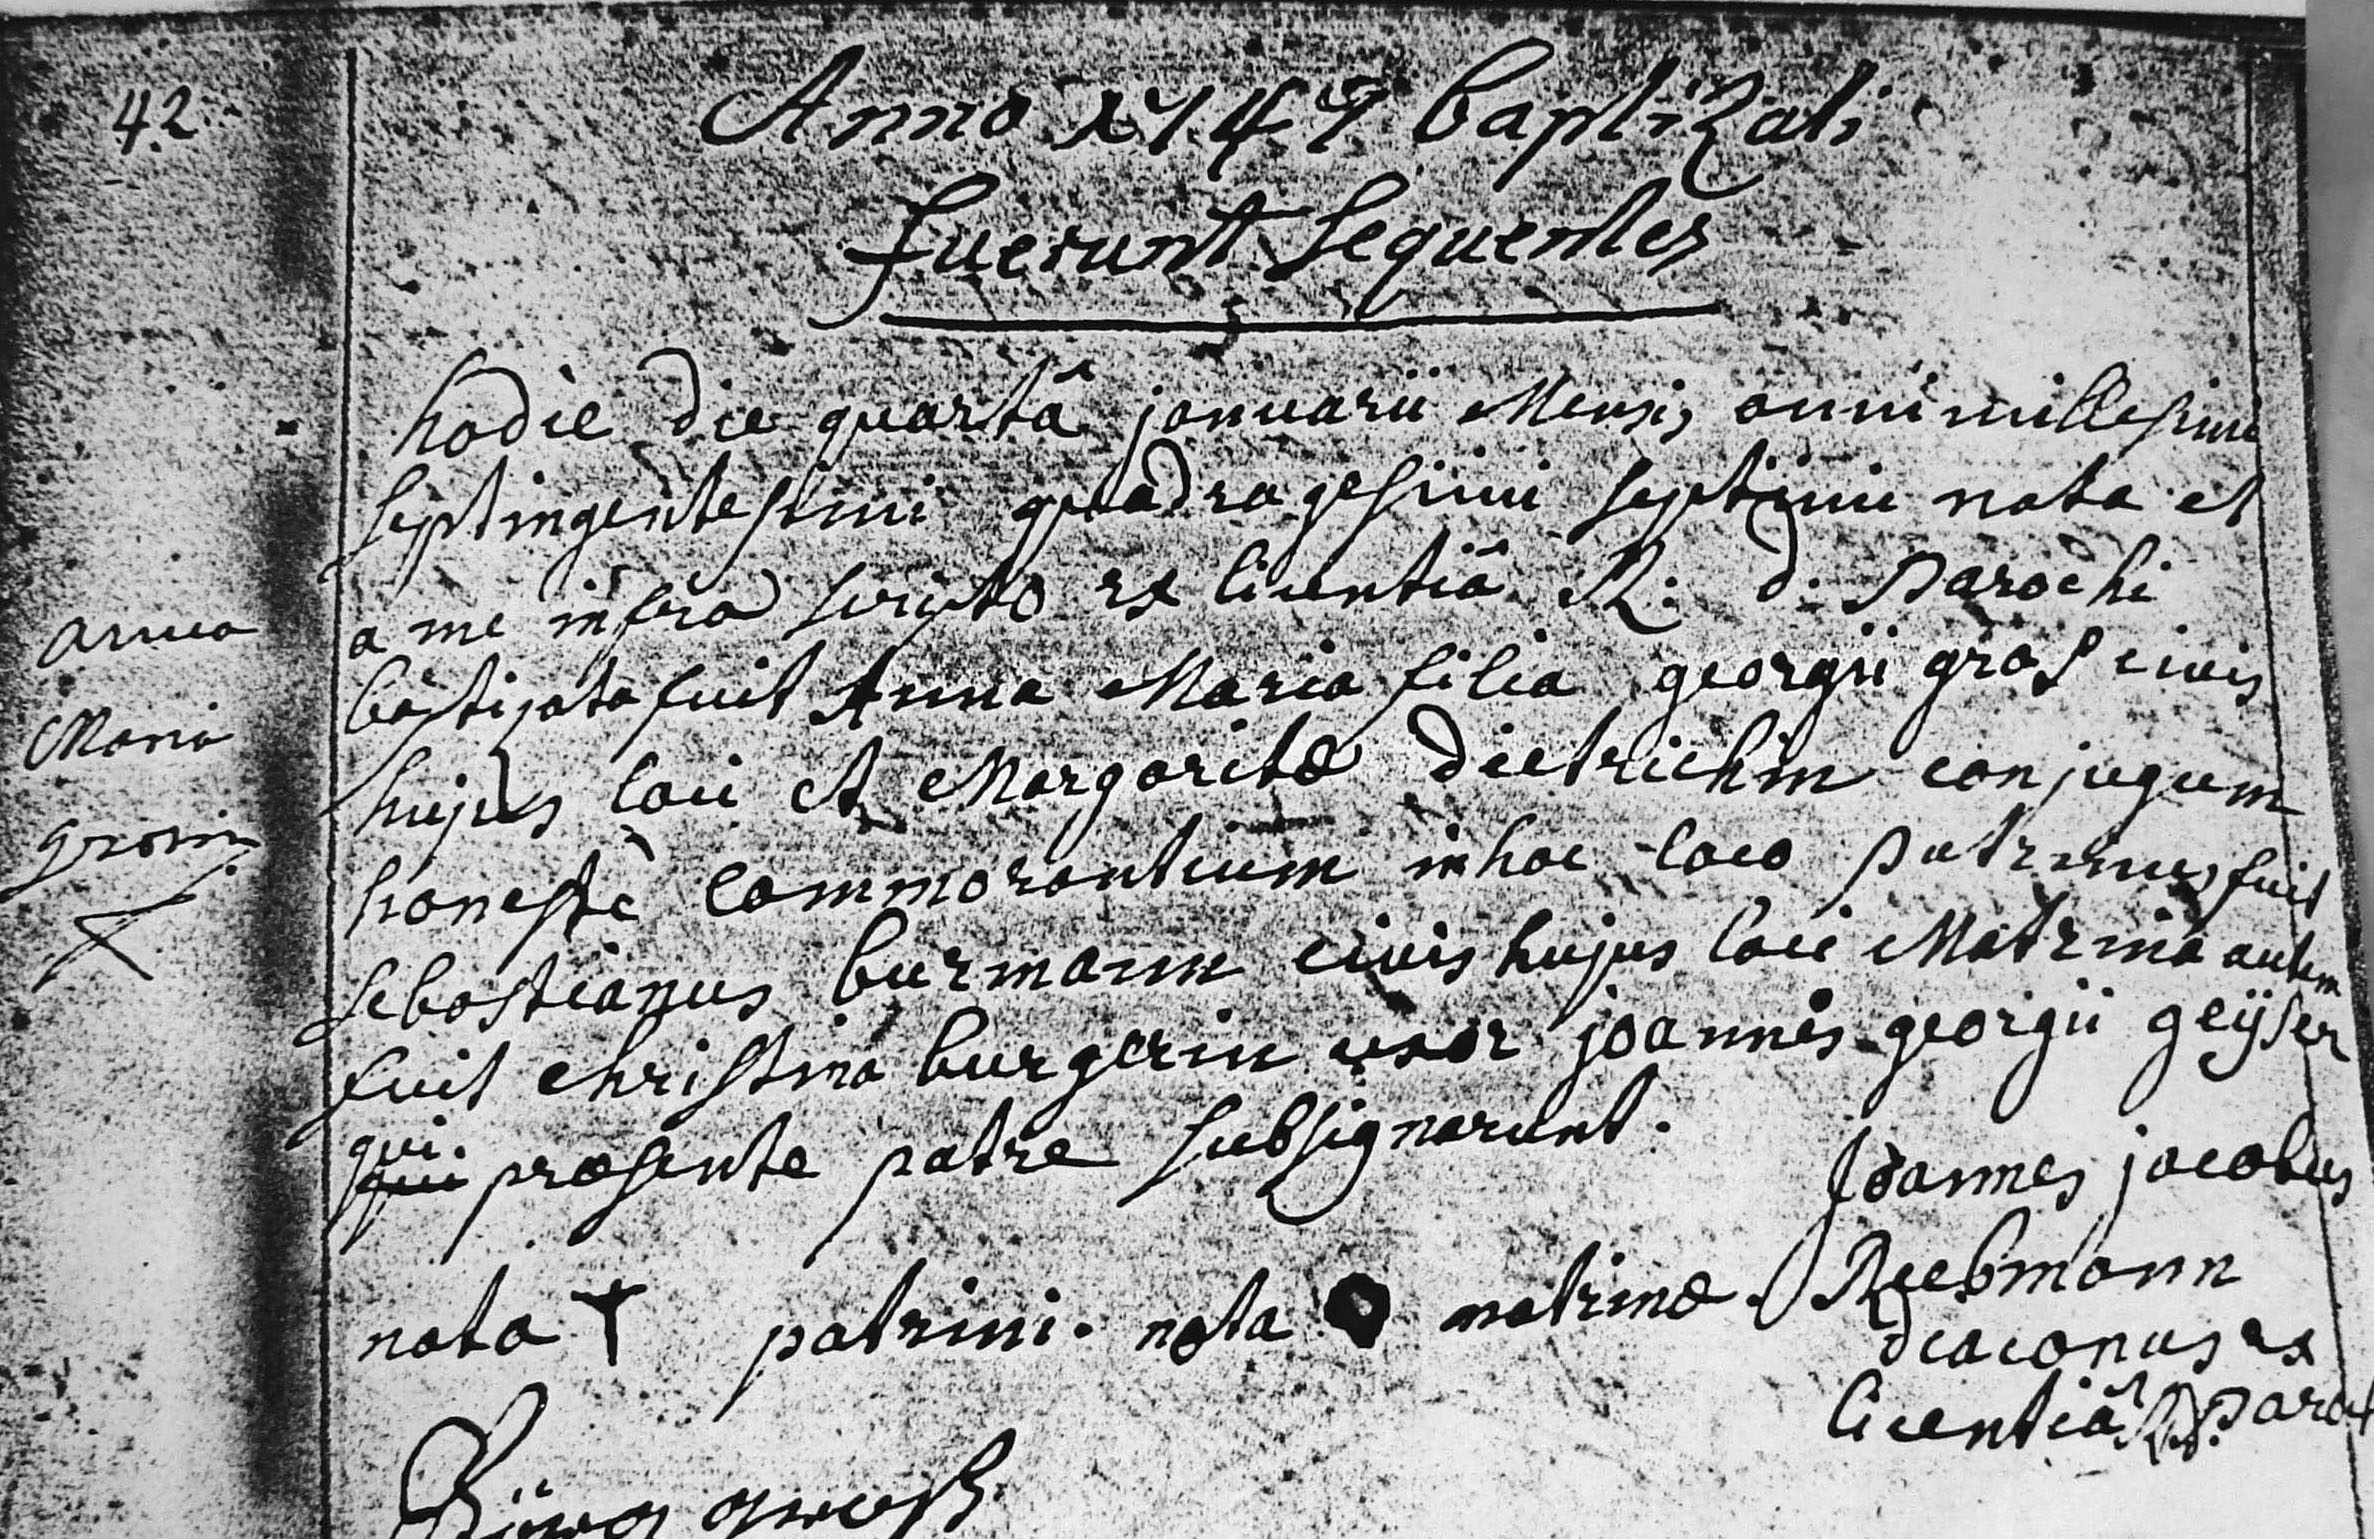 42
Anno 1747 baptizati
fuerunt sequentes
hodie die quartâ januarii Mensis anni millesimi
septingentesimi quadragesimi septimi nata et
a me infra scripto ex licentiâ R: d: Parochi
baptizata fuit Anna Maria filia georgii gros civis
hujus loci et Margaritæ dietrichin conjugum
honestè commorantium in hoc loco patrinus fuit
sebastianus burmann civis hujus loci Matrina autem
fuit christina burgerin uxor joannis georgii geÿser
qui
qui præsente patre subsignarunt.
anna
Maria
grosin
Joannes jacobus
Reebmann
diaconus ex
licentiâ R. D. Paroch
nota † patrini. nota O matrinæ.